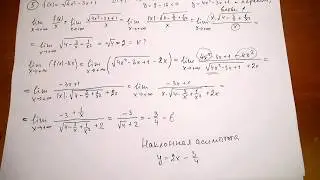 ⑤ f(x) = √(4x²-3x+1)
lim x→+∞ f(x)/x = lim x→+∞ √(4x²-3x+1)/x = lim x→+∞
= lim x→+∞ √(4-3/x+1/x²) = √4 = 2 = k?
lim x→+∞ (f(x)-kx) = lim x→+∞ (√(4x²-3x+1) - 2x) = lim x→+∞ (4x²-3x+1-4x²)/(√(4x²-3x+1)+2x) =
= lim x→+∞ (-3x+1)/(|x|·√(4-3/x+1/x²)+2x) = lim x→+∞ (-3x+1)/(x·√(4-3/x+1/x²)+2x) =
= lim x→+∞ (-3+1/x)/(√(4-3/x+1/x²)+2) = -3/(√4+2) = -3/4 = b
Наклонная асимптота
y = 2x - 3/4